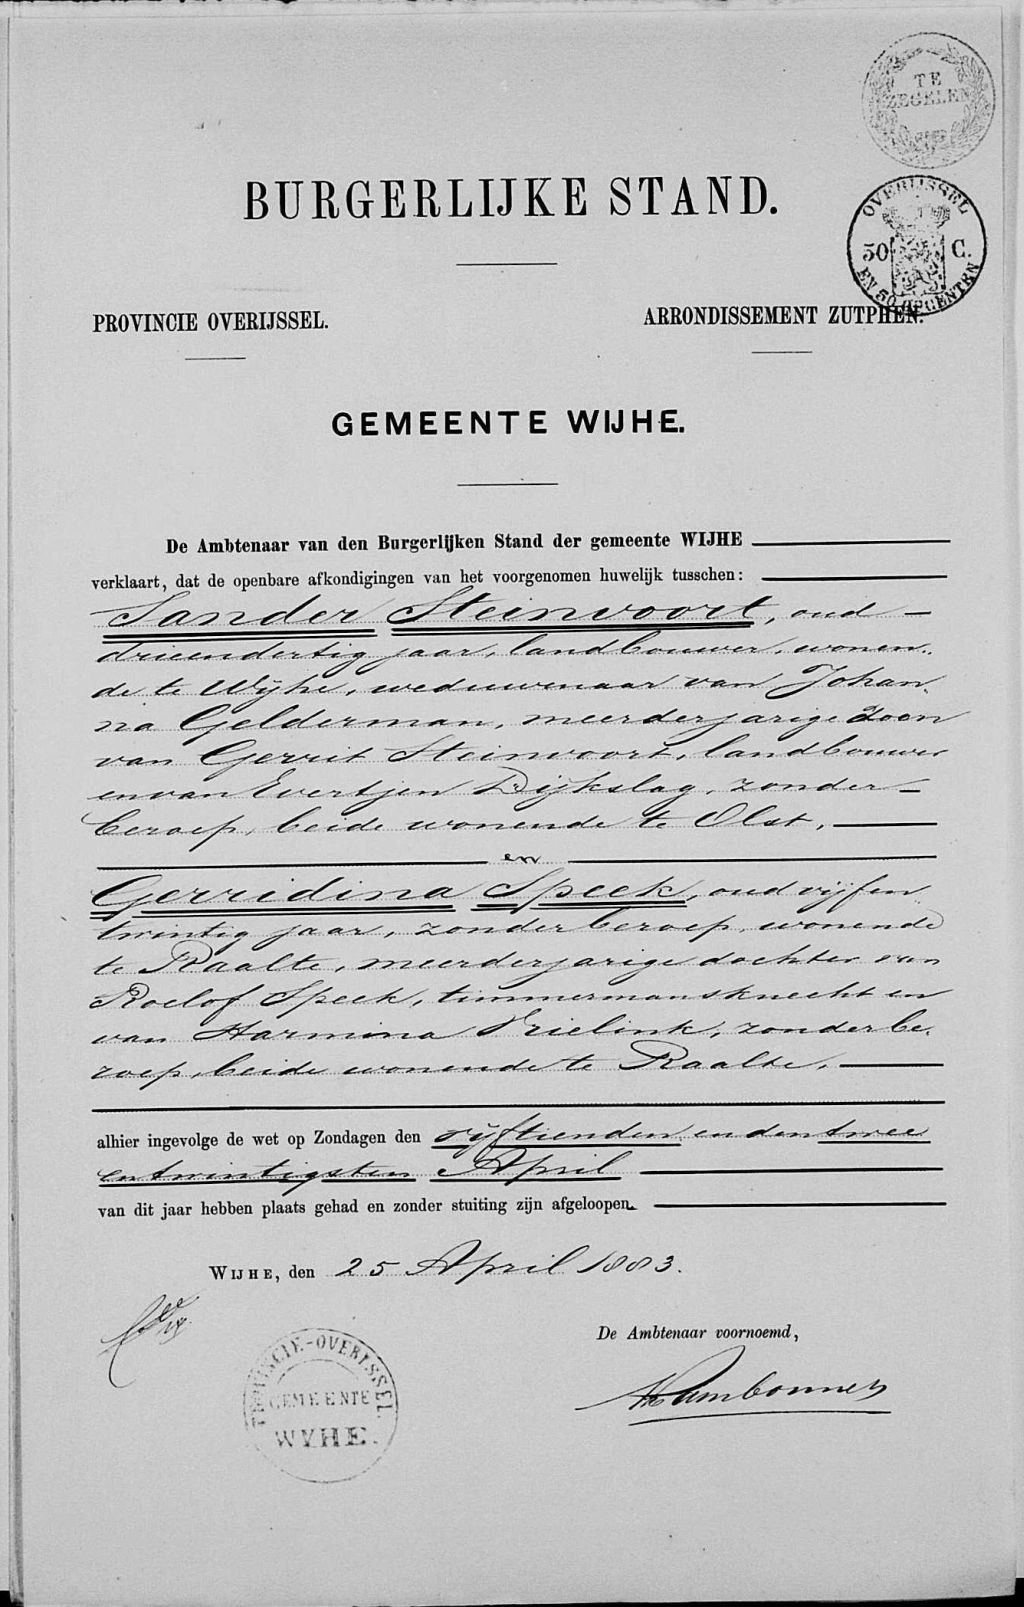 TE
ZEGELEN
BURGERLIJKE STAND.
OVERIJSSEL
50 C.
EN 50 OPCENTEN
PROVINCIE OVERIJSSEL.
ARRONDISSEMENT ZUTPHEN.
GEMEENTE WIJHE.
De Ambtenaar van den Burgerlijken Stand der gemeente WIJHE
verklaart, dat de openbare afkondigingen van het voorgenomen huwelijk tusschen:
Sander Steinvoort, oud
drieendertig jaar, landbouwer, wonen-
de te Wijhe, weduwenaar van Johan-
na Gelderman, meerderjarige zoon
van Gerrit Steinvoort, landbouwer
en van Evertjen Dijkslag, zonder
beroep, beide wonende te Olst,
en
Gerridina Speek, oud vijfen
twintig jaar, zonder beroep, wonende
te Raalte, meerderjarige dochter van
Roelof Speek, timmermansknecht en
van Harmina Vrielink, zonder be-
roep, beide wonende te Raalte,
alhier ingevolge de wet op Zondagen den vijftienden en den twee
entwintigsten April
van dit jaar hebben plaats gehad en zonder stuiting zijn afgeloopen.
WIJHE, den 25 April 1883.
De Ambtenaar voornoemd,
PROVINCIE-OVERIJSSEL.
GEMEENTE
WYHE.